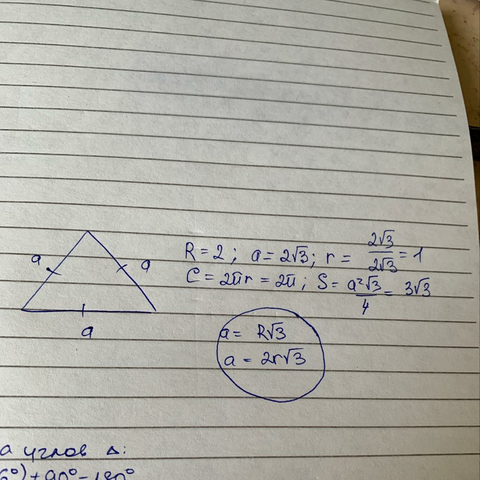 a
a
a
R = 2 ; a = 2√3 ; r = 2√3/2√3 = 1
C = 2πr = 2π ; S = a²√3/4 = 3√3
a = R√3
a = 2r√3
а углов Δ:
6°) + 90° = 180°